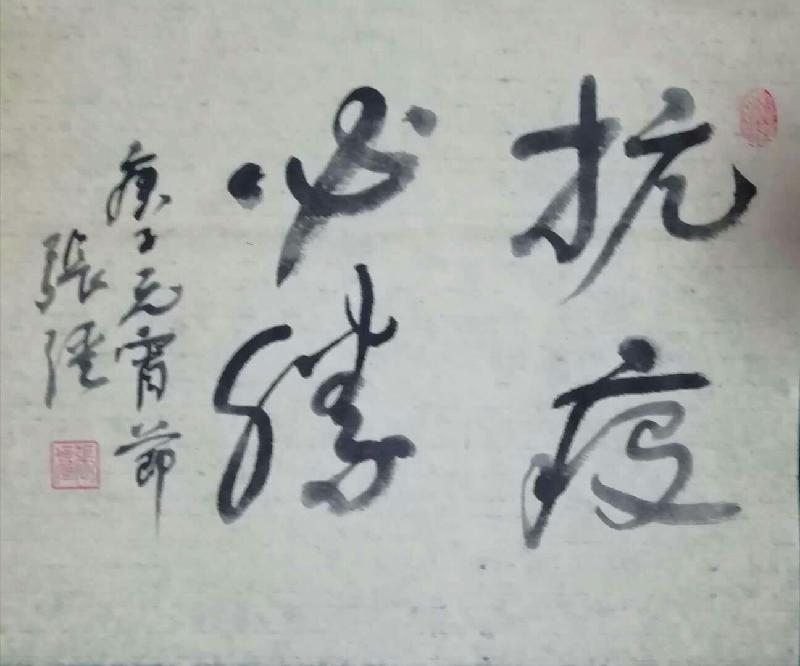 抗疫
必勝
庚子元宵節
張